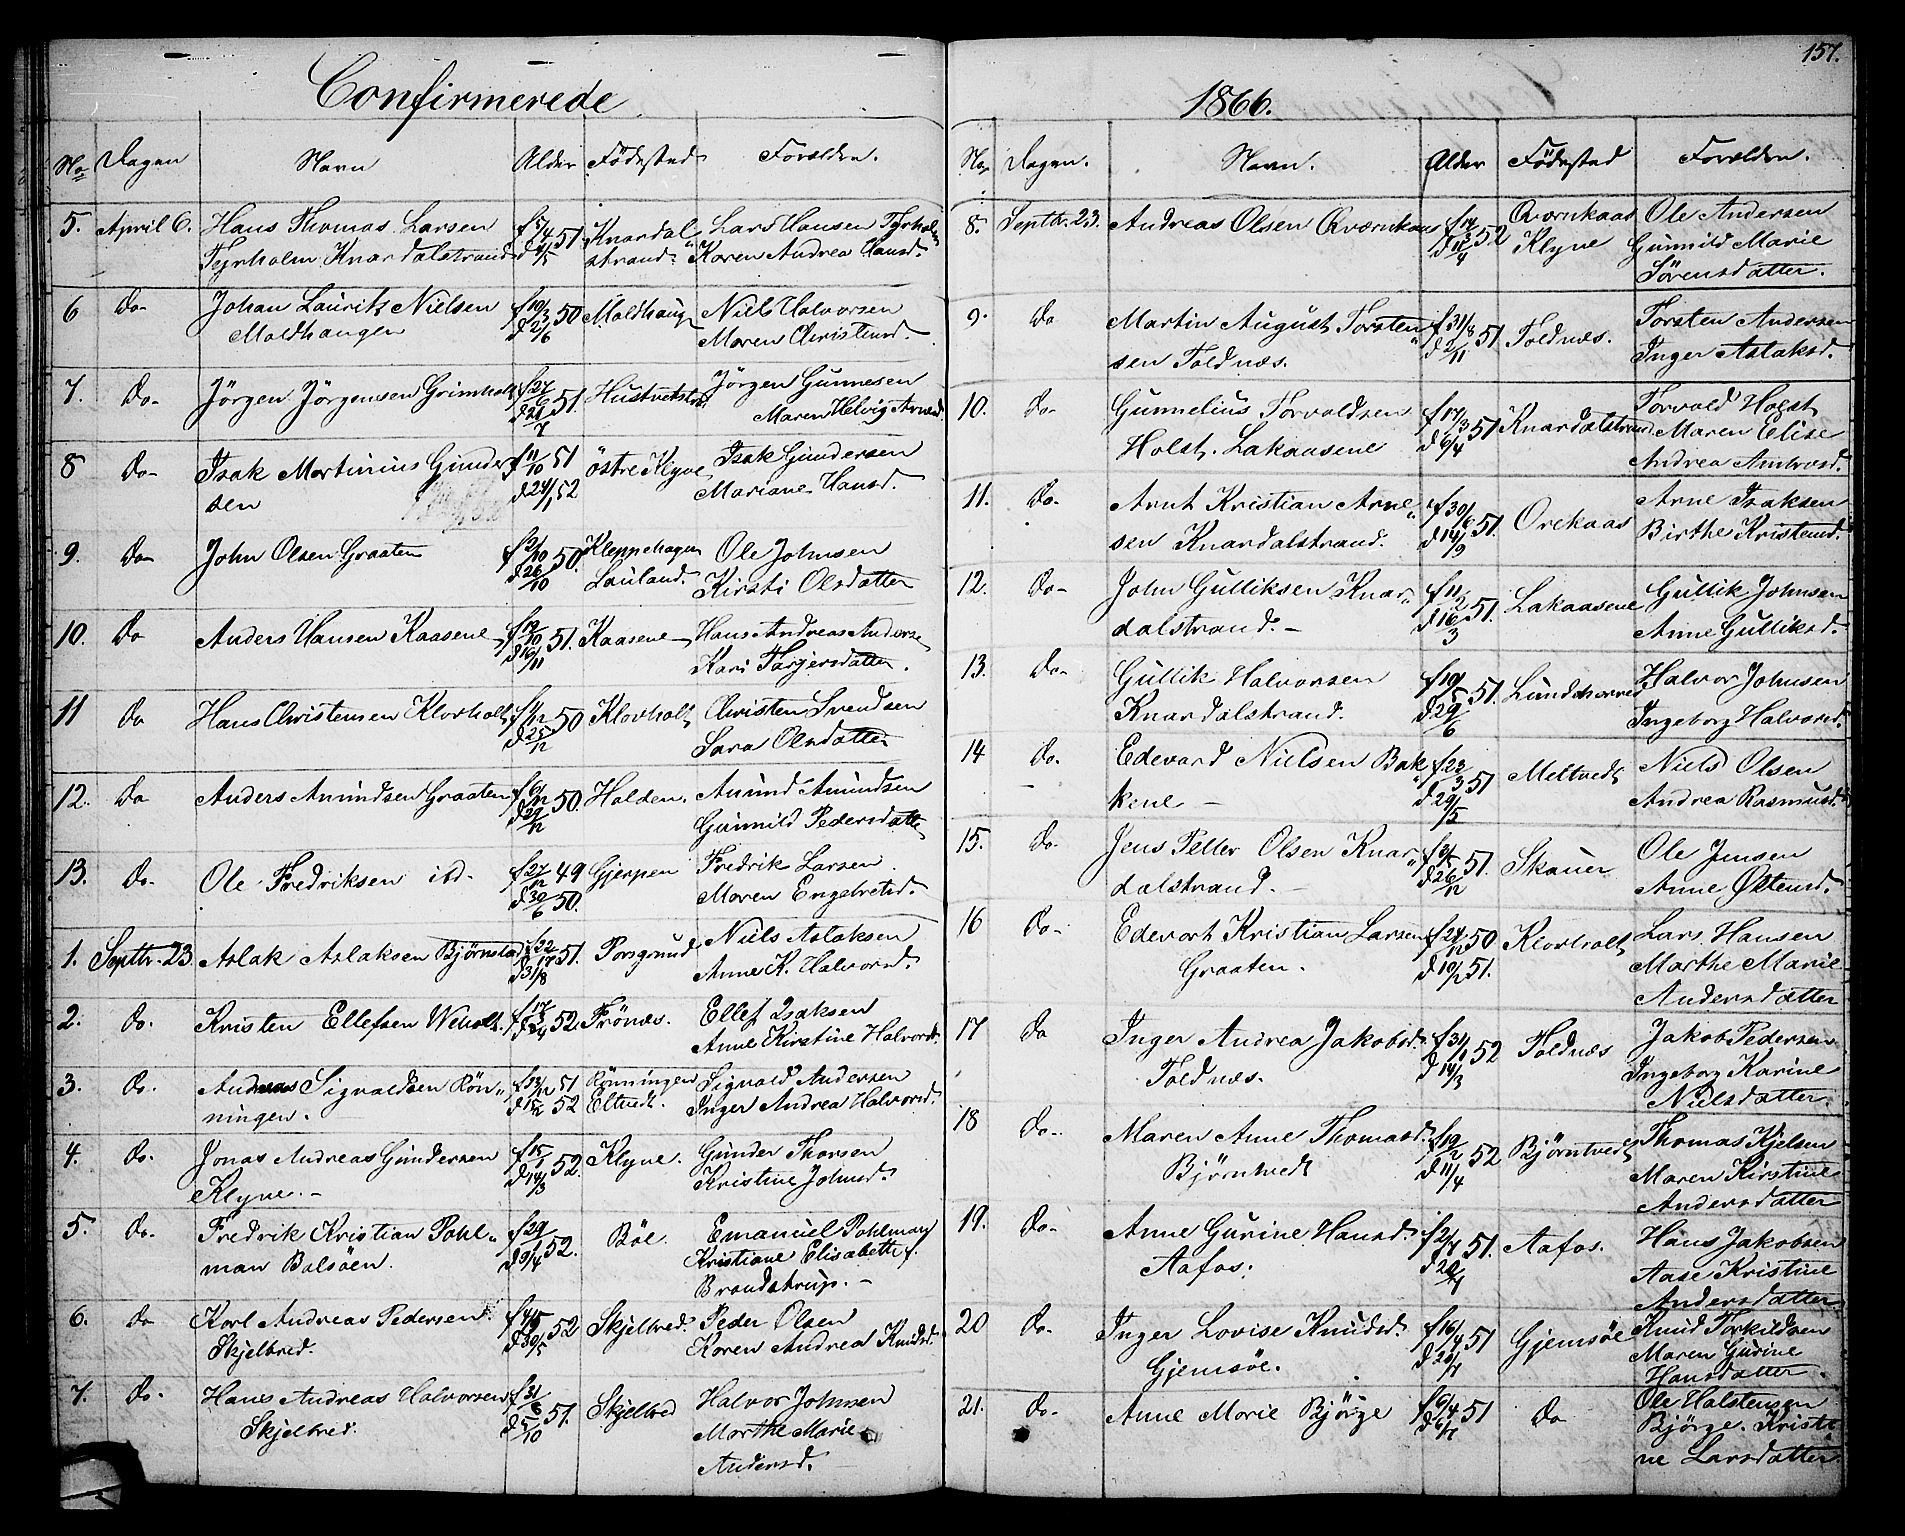 Confirmerede
No Dagen Navn Alder Födested Forældre.
5. April 6. Hans Thomas Larsen f 5/4 51 Knardal Lars Hansen Tyrholm
Tyrholm Knardalstrand d /5 strand Karen Andrea Hansd.
6 Do- Johan Lauritz Nielsen f 19/3 50 Moldhaug Niels Halvorsen
Moldhaugen d 2/6 Maren Christensd.
7. Do- Jörgen Jörgensen Grimholt f 27/6 51. Jörgen Gunnesen
d 27/7 Maren Helvig
8 Do- Isak Martinius Gunder f 11/10 51 östre Klyve Isak Gundersen
sen d 24/1 52 Mariane Hansd.
9. Do- John Olsen Graaten f 2/10 50. Kleppehagen Ole Johnsen
d 26/10 Lauland. Kirsti Olsdatter
10. Do Anders Hansen Kaasene f 19/10 51. Kaasene Hans Andreas Anders
d 16/11 Kari Targjersdatter.
11 do Hans Christensen Klovholt f 4/12 50 Klovholt Christen Svendsen
d 25/12 Sara Olsdatter
12. Do Anders Amundsen Graaten f 6/12 50. Holden. Amund Amundsen
d 29/12 Gunnild Pedersdatte
13. Do- Ole Fredriksen ibd. f 27/12 49 Gjerpen Fredrik Larsen
d 30/6 50. Maren Engebretsd.
1. Septbr. 23 Aslak Aslaksen Björnstad f 22/ 51. Porsgrund Niels Aslaksen
d 31/8 Anne K. Halvorsd.
2. Do. Kristen Ellefsen Weholt. f 17/3 52. Frönæs. Ellef Isaksen
Anne Kirstine Halvorsd.
3. Do. Andreas Signaldsen Rön f 13/12 51 Rönningen Signald Andersen
ningen. d 52 Eltvedt. Inger Andrea Halvorsd.
4. Do. Jonas Andreas Gundersen f 15/1 52. Klyve. Gunder Thorsen
Klyve. d 14/3 Kristine Johnsd.
5. Do. Fredrik Kristian Pohl f 29/1 52. Böe. Emanuel Pohlman
man Bolsöen. d 9/4 Kristiane Elisabeth f.
Brandstrup.
6. Do Karl Andreas Pedersen f 4/5 52 Skjelbred. Peder Olsen
Skjelbred. d 30/5 Karen Andrea Knudsd.
7. Do. Hans Andreas Halvorsen f 31/8 51. Skjelbred Halvor Johnsen
Skjelbred. d 5/10 Marthe Marie
Andersd.
157.
1866.
No Dagen. Navn. Alder Födested Forældre.
8. Septbr. 23. Andreas Olsen Qværnkaas f 14/3 52 Qværnkaas Ole Andersen
d 11/4 Klyve Gunnild Marie
Sörensdatter.
9. Do Martin August Torsten f 31/8 51 Foldnæs. Torsten Andersen
sen Foldnæs. d 2/11 Inger Aslaksd.
10. Do- Gunnelius Torvaldsen f 17/3 51 Knardalstrand Torvald Holst
Holst. Lakaasene d 6/4 Maren Elise
Andrea Ambrosd.
11. Do- Arnt Kristian Arne f 30/6 51. Orekaas Arne Isaksen
sen Knardalstrand. d 14/9 Birthe Kristensd.
12. Do- John Gulliksen Knar f 11/2 51. Lakaasene Gullik Johnsen
dalstrand.- d 16/3 Anne Gulliksd.
13. Do- Gullik Halvorsen f 19/5 51. Halvor Johnsen
Knardalstrand. d 29/6 Ingeborg Halvorsd.
14 do. Edevard Nielsen Bak f 23/3 51 Meltvedt Niels Olsen
kene - d 29/5 Andrea Rasmusd.
15. do- Jens Petter Olsen Knar f 3/5 51. Skauer Ole Jensen
dalstrand.- d 26/12 Anne Östensd.
16 Do- Edevart Kristian Larsen f 24/12 50 Klovholt Lars Hansen
Graaten. d 10/2 51. Marthe Marie
Andersdatter
17 Do Inger Andrea Jakobsd. f 31/1 52 Foldnæs Jakob Pedersen
Foldnæs. d 14/3 Ingeborg Karine
Nielsdatter.
18 Do- Maren Anne Thomasd. f 19/2 52 Björntvedt Thomas Kjelsen
Björntvedt d 11/4 Maren Kirstine
Andersdatter
19. Do- Anne Gurine Hansd. f 2/4 51. Aafos. Hans Jakobsen
Aafos. Aase Kristine
Andersdatter
20 Do- Inger Lovise Knudsd. f 16/4 51 Gjemsöe Knud Torkildsen
Gjemsöe. Maren Gurine
Hansdatter.
21. Do- Anne Marie Björge f 6/4 51 Do Ole Halstensen
Björge. Kristi
ne Larsdatter.